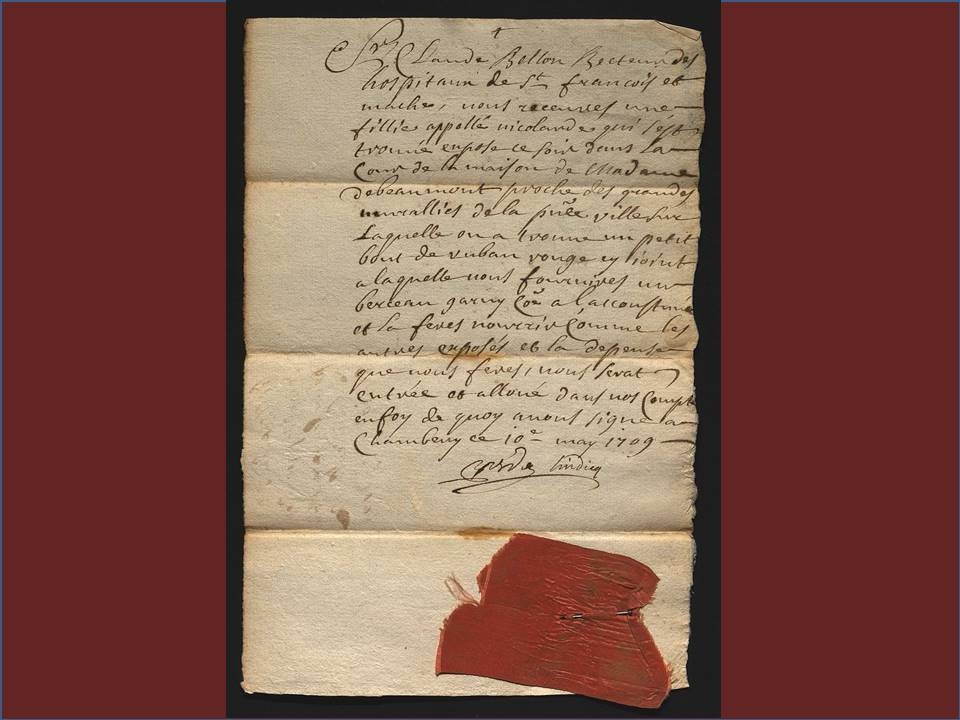 Sr Claude Bellon Recteur des
hospitaux de St francois et
mache, nous receuves une
fillie appellé nicolarde qui sést
trouué expose ce soir dans la
Cour de la maison de Madame
debeaumont proche des grandes
murallies de la pñte ville sur
Laquelle on a trouue un petit
bout de ruban rouge cy ioint
a laquelle vous fournires un
berceau garny Cõe a laccoustume
et la feres nourrir Comme les
autres exposés et la depense
que vous feres, vous serat
entrée et alloué dans vos Compt
enfoy de quoy auons signé a
Chambery ce 10e may 1709
sindicq